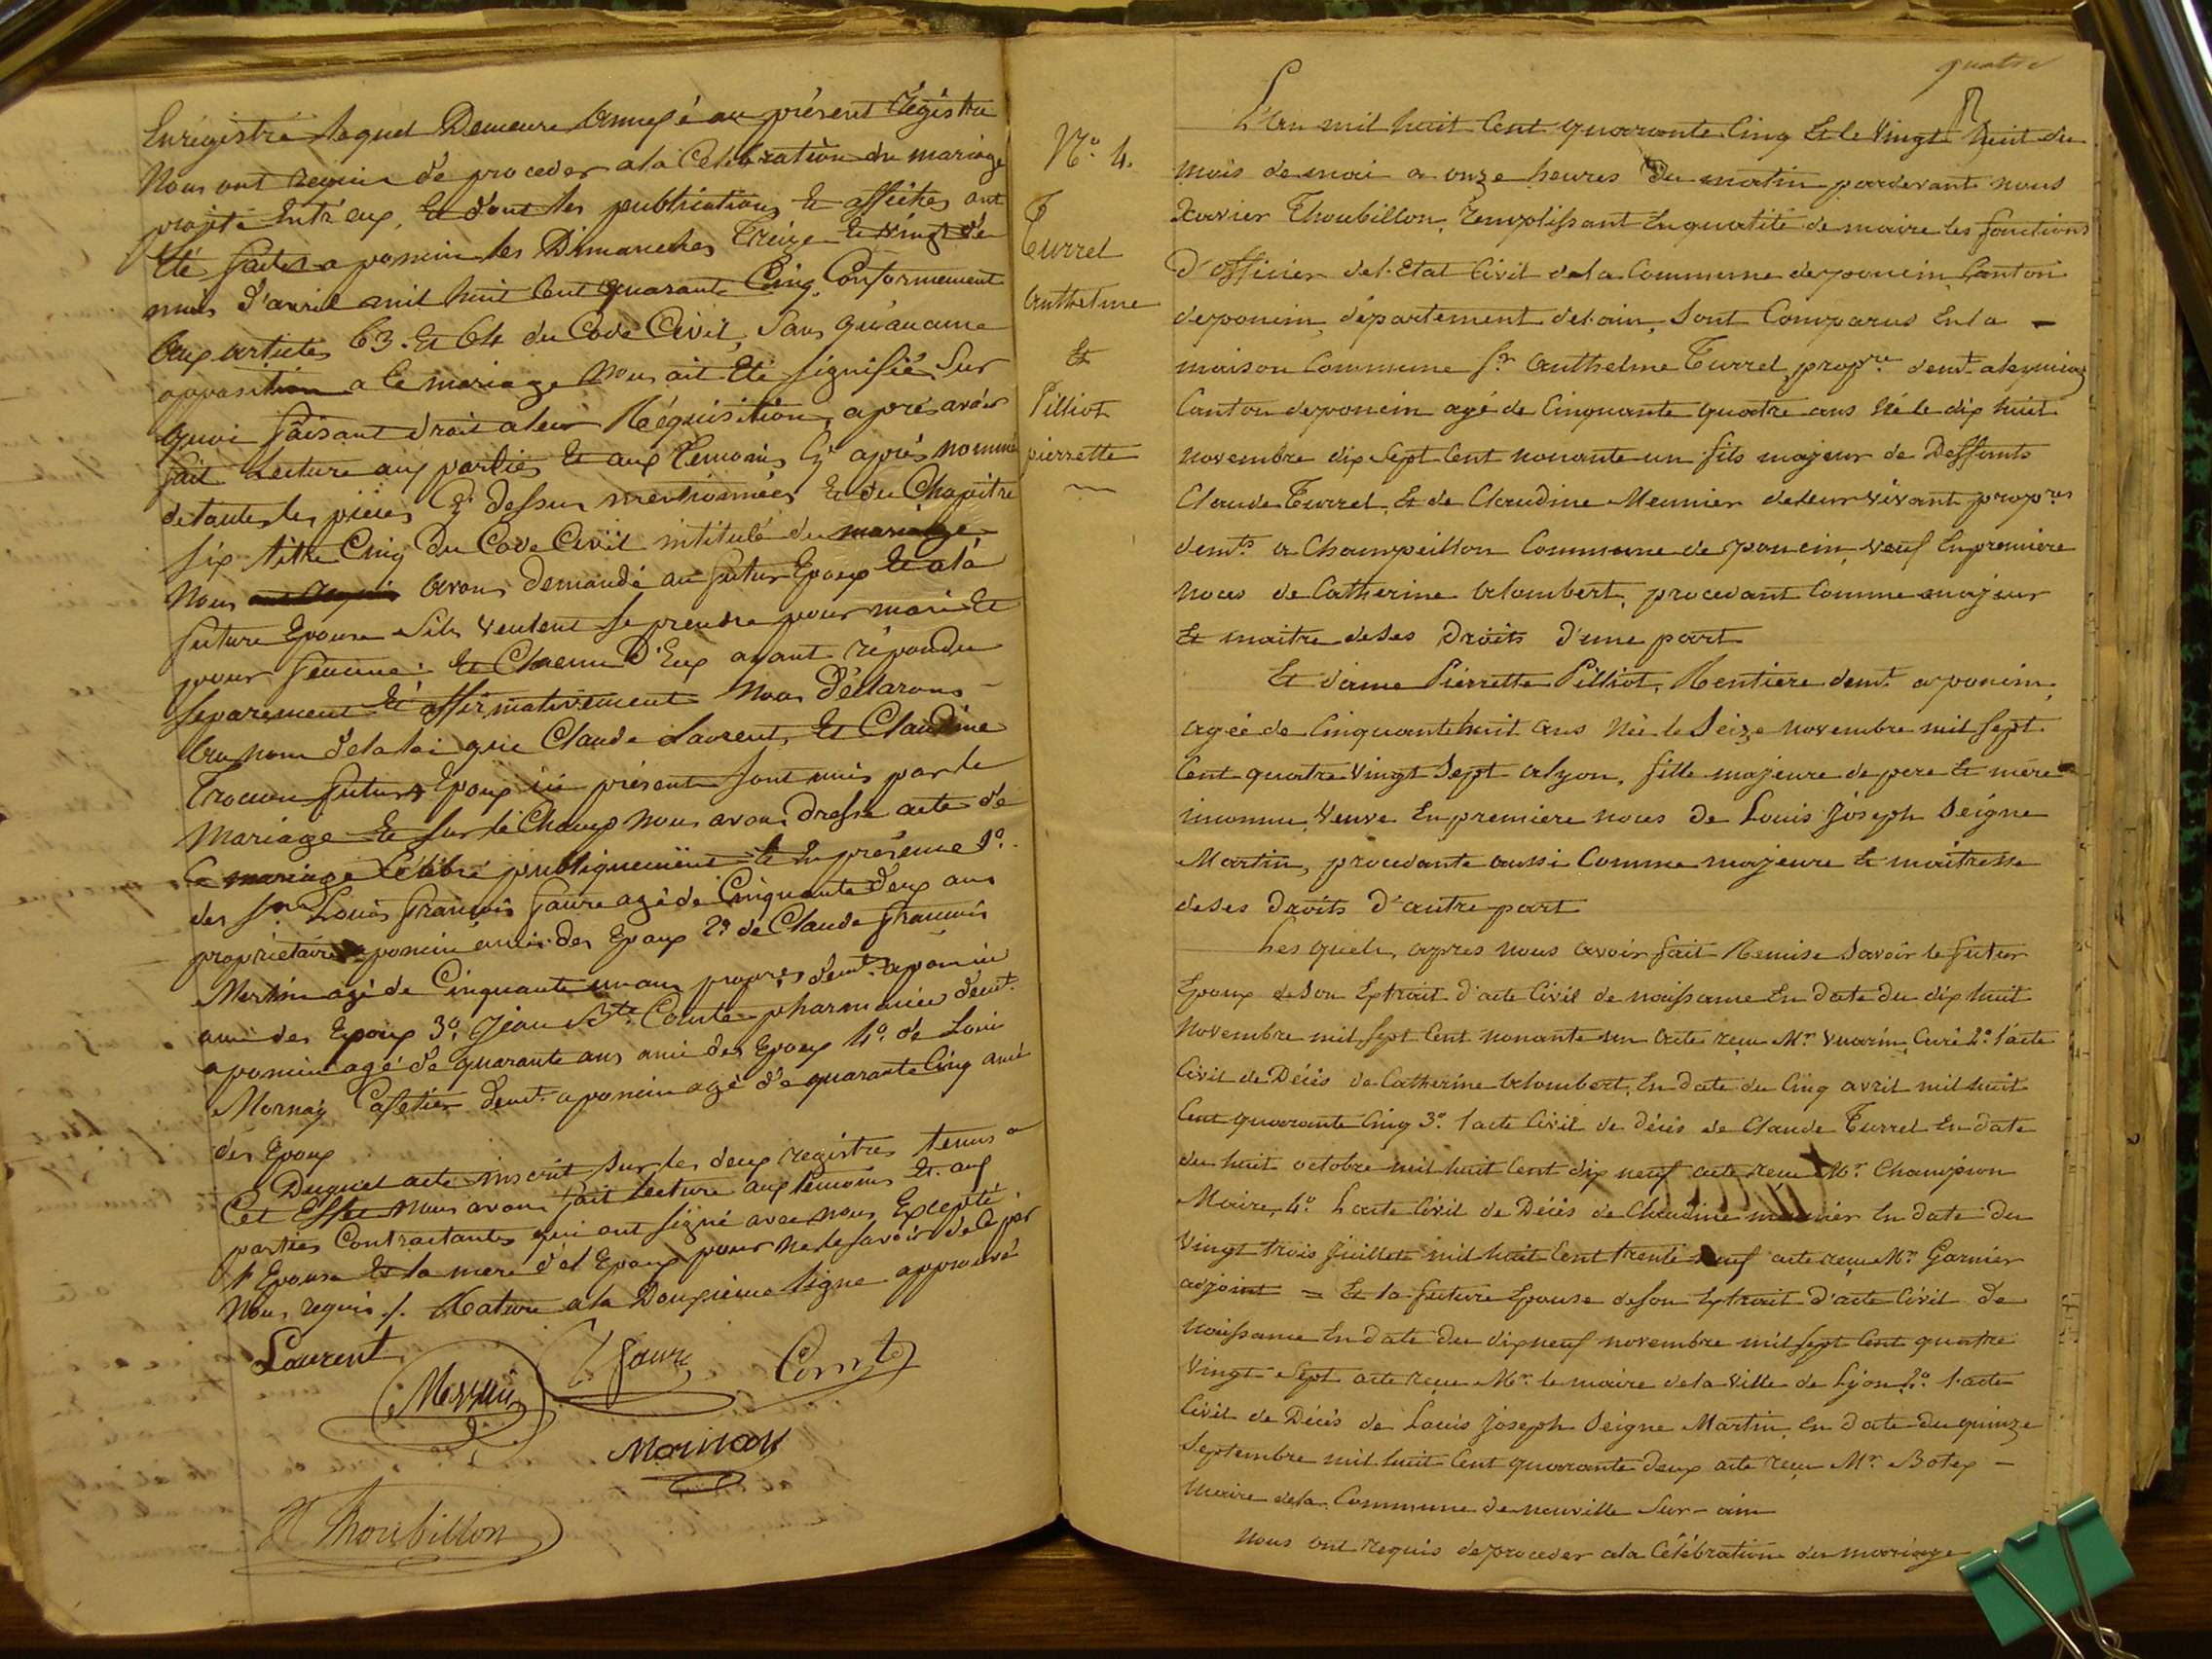 Enregistré lequel Demeure annexé au présent Régistre
Nous ont requis de proceder a la Célébration du mariage
projeté Entr'eux, Et dont les publications Et affiches ont
Eté faites a poncin les Dimanches Treize Et Vingt de
mois d'avril mil huit Cent quarante Cinq, Conformement
aux articles 63. Et 64 du Code Civil, Sans qu'aucune
opposition a Ce mariage Nous ait Eté signifiée, Sur
quoi faisant droit a leur Réquisition, après avoir
fait Lecture aux parties Et aux Temoins Cy après nommés
de toutes les pièces Cy dessus mentionnées Et du Chapitre
Six titre Cinq Du Code Civil intitulé du mariage,
Nous avons Demandé au futur Epoux Et a la
future Epouse S'ils Veulent Se prendre pour mari Et
pour femme; Et Chacun D'Eux ayant répondu
Separement Et affirmativement Nous Déclarons
au nom de la loi que Claude Laurent, Et Claudine
futurs Epoux ici présent sont unis par le
Mariage Et sur le Champ nous avons dressé acte de
Ce mariage Célébré publiquement Et En présence 1o.
des Sr. Louis françois faure agé de Cinquante deux ans
propriétaire a poncin ami des Epoux 2o de Claude françois
Mermin agé de Cinquante un ans propre demt. a poncin
ami des Epoux 3o. Jean Bte. Conte pharmacien demt.
a poncin agé de quarante ans ami des Epoux 4o. de Louis
Mornay Cafetier demt. a poncin agé de quarante Cinq ami
des Epoux
Duquel acte inscrit Sur les deux régistres tenus a
Cet Effet nous avons fait lecture aux temoins Et aux
parties Contractantes qui ont signé avec nous Excepté
l'Epouse Et la mere de l'Epoux pour ne le savoir de Ce par
Nous requis ./. Rature a la Douzième ligne approuvé
Laurent
faure Conte
Mornay
X Thoubillon
quatre
No. 4.
Turrel
anthelme
Et
Pilliot
pierrette
L'an mil huit Cent quarante Cinq Et le Vingt huit du
mois de mai a onze heures Du matin pardevant nous
Xavier Thoubillon, remplissant En qualité de maire les fonctions
D'officier de l'Etat Civil de la Commune de poncin Canton
de poncin, département de l'ain, Sont Comparus En la -
maison Commune Sr. Anthelme Turrel, propre. demt.
Canton de poncin agé de Cinquante quatre ans Né le dix huit
novembre dix Sept Cent nonante un fils majeur de Deffunts
Claude Turrel, Et de Claudine Meunier de leur vivant propres
demts. a Champeillon Commune de poncin, veuf En premiere
noces de Catherine alombert, procedant Comme majeur
Et maitre de Ses Droits D'une part
Et dame Pierrette Pilliot, Rentiere demt. a poncin,
agée de Cinquante huit ans Née le Seize novembre mil Sept
Cent quatre Vingt Sept a lyon, fille majeure de pere Et mère
inconnu, Veuve En premiere noces De Louis Joseph Seigne
Martin, procedante aussi Comme majeure Et maitresse
de Ses Droits D'autre part
Les quels, apres nous avoir fait Remise Savoir le futur
Epoux de Son Extrait d'acte Civil de naissance En date du dix huit
Novembre mil Sept Cent nonante un acte reçu Mr. Vuarin, Curé 2o. l'acte
Civil de Décès de Catherine alombert, En date du Cinq avril mil huit
Cent quarante Cinq 3o. l'acte Civil de décès de Claude Turrel En date
du huit octobre mil huit Cent dix neuf acte reçu Mr. Champion
Maire, 4o. L'acte Civil de Décès de Claudine meunier En date du
Vingt trois Juillet mil huit Cent trente neuf acte reçu Mr. Garnier
adjoint = Et la future Epouse de Son Extrait d'acte Civil de
Naissance En date du dixneuf novembre mil Sept Cent quatre
Vingt Sept acte reçu Mr. le maire de la Ville de Lyon, 2o. l'acte
Civil de Décès de Louis Joseph Seigne Martin, En date du quinze
Septembre mil huit Cent quarante deux acte reçu Mr. Botex -
Maire de la Commune de neuville Sur-ain
Nous ont requis de proceder a la Célébration du mariage